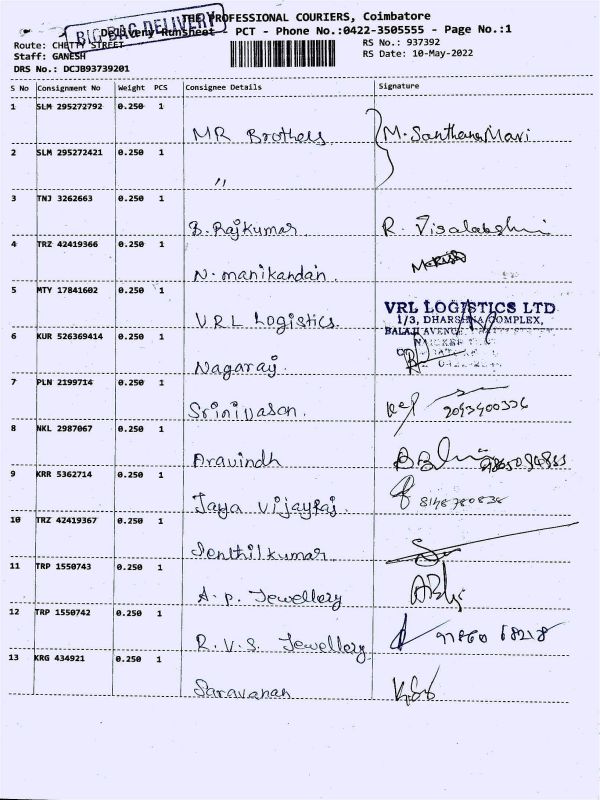 THE PROFESSIONAL COURIERS, Coimbatore
BIG BAG DELIVERY
Delivery RunSheet - PCT - Phone No.:0422-3505555 - Page No.:1
Route: CHETTY STREET
RS No.: 937392
Staff: GANESH
RS Date: 10-May-2022
DRS No.: DCJB93739201
S No Consignment No Weight PCS Consignee Details Signature
1 SLM 295272792 0.250 1
MR Brothers M. Santhana Mari
2 SLM 295272421 0.250 1
"
3 TNJ 3262663 0.250 1
B. Rajkumar R. Visalakshi
4 TRZ 42419366 0.250 1
N. manikandan
5 MTY 17841602 0.250 1
VRL LOGISTICS LTD
1/3, DHARSHNA COMPLEX,
VRL Logistics
BALAJI AVENUE,
6 KUR 526369414 0.250 1
Nagaraj
7 PLN 2199714 0.250 1
Srinivason
8 NKL 2987067 0.250 1
Aravindh
9 KRR 5362714 0.250 1
Jaya Vijayraj
10 TRZ 42419367 0.250 1
Senthilkumar
11 TRP 1550743 0.250 1
A. P. Jewellery
12 TRP 1550742 0.250 1
R. V. S. Jewellery 97860 68218
13 KRG 434921 0.250 1
Saravanan